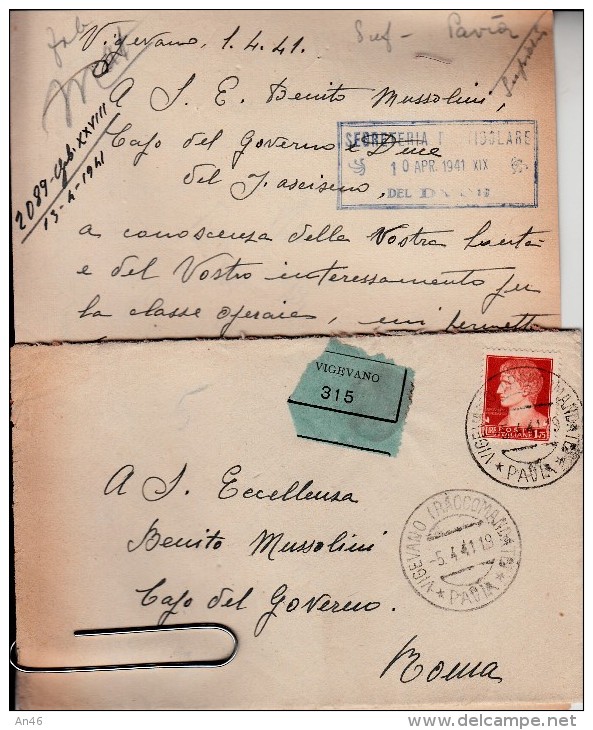 Vigevano, 1.4.41.
Pref - Pavia
A S. E. Benito Mussolini,
Capo del Governo e Duce
del Fascismo,
SEGRETERIA PARTICOLARE
10 APR. 1941 XIX
DEL DUCE
2089-Gab. XXVIII
13-4-1941
a conoscenza della Vostra bontà
e del Vostro interessamento per
la classe operaia, mi permetto
VIGEVANO
315
POSTE
ITALIANE
1,75
VIGEVANO (RACCOMANDATE)
* PAVIA *
VIGEVANO (RACCOMANDATE)
-5.4.41 19
* PAVIA *
A S. Eccellenza
Benito Mussolini
Capo del Governo.
Roma
An46
delcampe.net